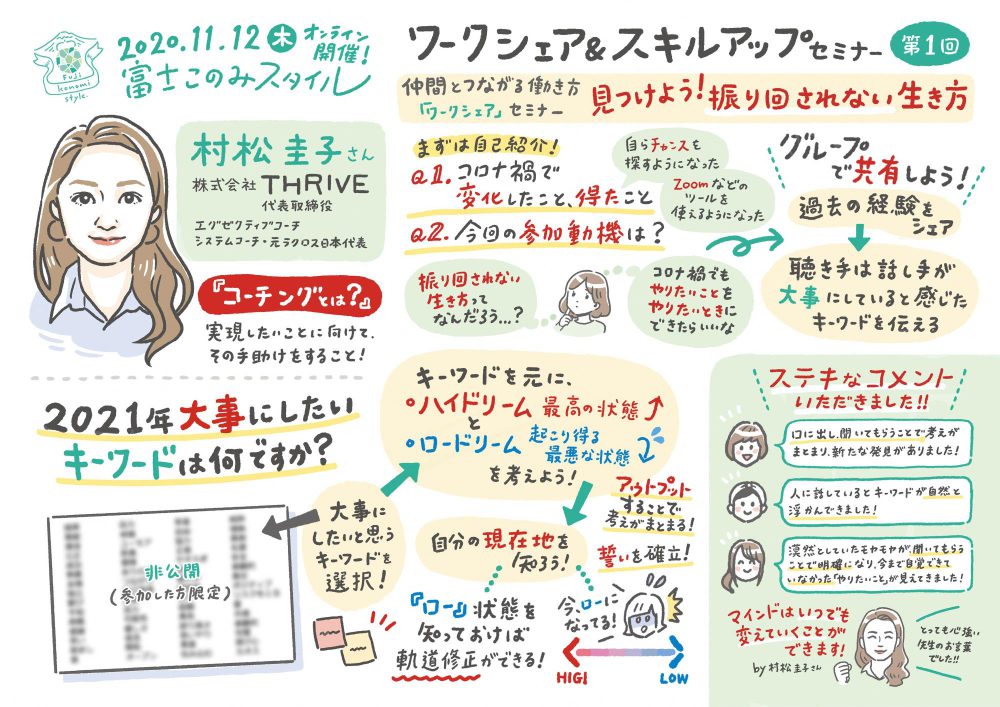 Fuji
konomi
style.
2020.11.12 木 オンライン
開催!
富士このみスタイル
ワークシェア&スキルアップセミナー 第1回
仲間とつながる働き方
「ワークシェア」セミナー
見つけよう!振り回されない生き方
村松圭子さん
株式会社 THRIVE
代表取締役
エグゼクティブコーチ
システムコーチ・元ラクロス日本代表
『コーチングとは?』
実現したいことに向けて、
その手助けをすること!
まずは自己紹介!
Q1.コロナ禍で
変化したこと、得たこと
Q2.今回の参加動機は?
自らチャンスを
探すようになった
Zoomなどの
ツールを
使えるようになった
振り回されない
生き方って
なんだろう…?
コロナ禍でも
やりたいことを
やりたいときに
できたらいいな
グループ
で共有しよう!
過去の経験を
シェア
聴き手は話し手が
大事にしていると感じた
キーワードを伝える
2021年大事にしたい
キーワードは何ですか?
非公開
(参加した方限定)
大事に
したいと思う
キーワードを
選択!
キーワードを元に、
ハイドリーム 最高の状態
と
ロードリーム 起こり得る
最悪な状態
を考えよう!
アウトプット
することで
考えがまとまる!
誓いを確立!
自分の現在地を
知ろう!
『ロー』状態を
知っておけば
軌道修正ができる!
今、ローに
なってる!
HIGH
LOW
ステキなコメント
いただきました!!
口に出し、聞いてもらうことで考えが
まとまり、新たな発見がありました!
人に話しているとキーワードが自然と
浮かんできました!
漠然としていたモヤモヤが、聞いてもらう
ことで明確になり、今まで自覚できて
いなかった「やりたいこと」が見えてきました!
マインドはいつでも
変えていくことが
できます!
by 村松圭子さん
とっても心強い
先生のお言葉
でした!!